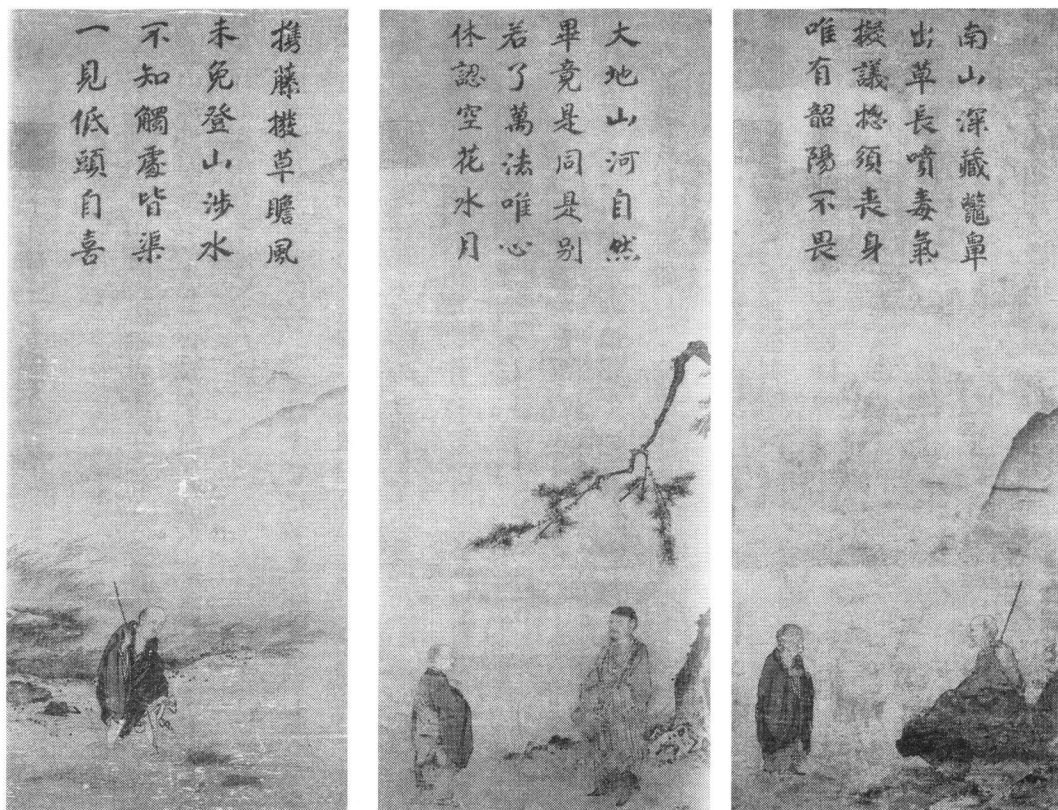 南山深藏鼈鼻
出草長噴毒氣
擬議捴須喪身
唯有韶陽不畏
大地山河自然
畢竟是同是別
若了萬法唯心
休認空花水月
擕藤撥草瞻風
未免登山涉水
不知觸處皆渠
一見低頭自喜